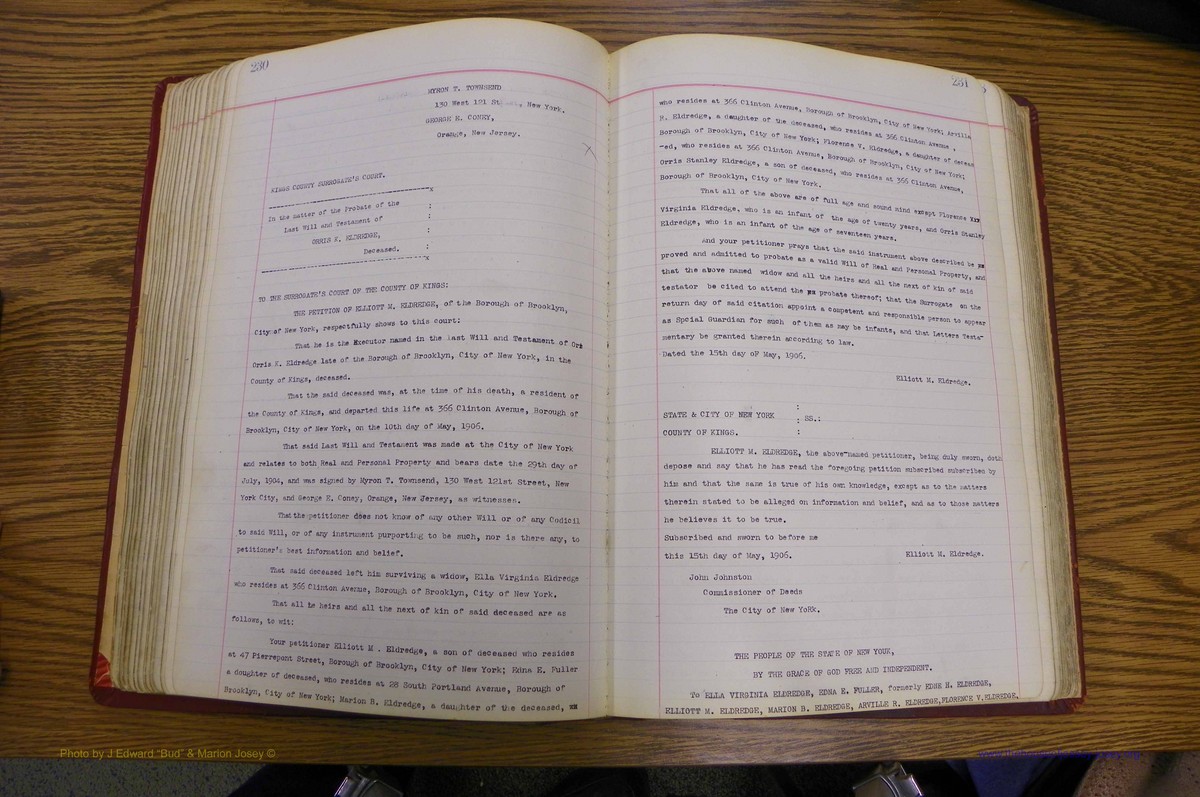 230
MYRON T. TOWNSEND
130 West 121 St , New York.
GEORGE E. CONEY,
Orange, New Jersey.
KINGS COUNTY SURROGATE'S COURT.
-----------------------------------x
In the matter of the Probate of the :
Last Will and Testament of :
ORRIS K. ELDREDGE, :
Deceased. :
-----------------------------------x
TO THE SURROGATE'S COURT OF THE COUNTY OF KINGS:
THE PETITION OF ELLIOTT M. ELDREDGE, of the Borough of Brooklyn,
City of New York, respectfully shows to this court:
That he is the Executor named in the Last Will and Testament of Orr
Orris K. Eldredge late of the Borough of Brooklyn, City of New York, in the
County of Kings, deceased.
That the said deceased was, at the time of his death, a resident of
the County of Kings, and departed this life at 366 Clinton Avenue, Borough of
Brooklyn, City of New York, on the 10th day of May, 1906.
That said Last Will and Testament was made at the City of New York
and relates to both Real and Personal Property and bears date the 29th day of
July, 1904, and was signed by Myron T. Townsend, 130 West 121st Street, New
York City, and George E. Coney, Orange, New Jersey, as witnesses.
That the petitioner does not know of any other Will or of any Codicil
to said Will, or of any instrument purporting to be such, nor is there any, to
petitioner's best information and belief.
That said deceased left him surviving a widow, Ella Virginia Eldredge
who resides at 366 Clinton Avenue, Borough of Brooklyn, City of New York.
That all heirs and all the next of kin of said deceased are as
follows, to wit:
Your petitioner Elliott M . Eldredge, a son of deceased who resides
at 47 Pierrepont Street, Borough of Brooklyn, City of New York; Edna E. Fuller
a daughter of deceased, who resides at 28 South Portland Avenue, Borough of
Brooklyn, City of New York; Marion B. Eldredge, a daughter of the deceased,
231
who resides at 366 Clinton Avenue, Borough of Brooklyn, City of New York; Arvilla
R. Eldredge, a daughter of the deceased, who resides at 366 Clinton Avenue ,
Borough of Brooklyn, City of New York; Florence V. Eldredge, a daughter of deceas
-ed, who resides at 366 Clinton Avenue, Borough of Brooklyn, City of New York;
Orris Stanley Eldredge, a son of deceased, who resides at 366 Clinton Avenue,
Borough of Brooklyn, City of New York.
That all of the above are of full age and sound mind except Florence
Virginia Eldredge, who is an infant of the age of twenty years, and Orris Stanley
Eldredge, who is an infant of the age of seventeen years.
and your petitioner prays that the said instrument above described be
proved and admitted to probate as a valid Will of Real and Personal Property, and
that the above named widow and all the heirs and all the next of kin of said
testator be cited to attend the probate thereof; that the Surrogate on the
return day of said citation appoint a competent and responsible person to appear
as Special Guardian for such of them as may be infants, and that Letters Testa-
mentary be granted therein according to law.
Dated the 15th day oF May, 1906.
Elliott M. Eldredge.
STATE & CITY OF NEW YORK : SS.:
COUNTY OF KINGS. :
ELLIOTT M. ELDREDGE, the above-named petitioner, being duly sworn, doth
depose and say that he has read the foregoing petition subscribed subscribed by
him and that the same is true of his own knowledge, except as to the matters
therein stated to be alleged on information and belief, and as to those matters
he believes it to be true.
Subscribed and sworn to before me
this 15th day of May, 1906. Elliott M. Eldredge.
John Johnston
Commissioner of Deeds
The City of New York.
THE PEOPLE OF THE STATE OF NEW YOUK,
BY THE GRACE OF GOD FREE AND INDEPENDENT.
To ELLA VIRGINIA ELDREDGE, EDNA E. FULLER, formerly EDNE H. ELDREDGE,
ELLIOTT M. ELDREDGE, MARION B. ELDREDGE, ARVILLE R. ELDREDGE,FLORENCE V.ELDREDGE,
Photo by J Edward "Bud" & Marion Josey ©